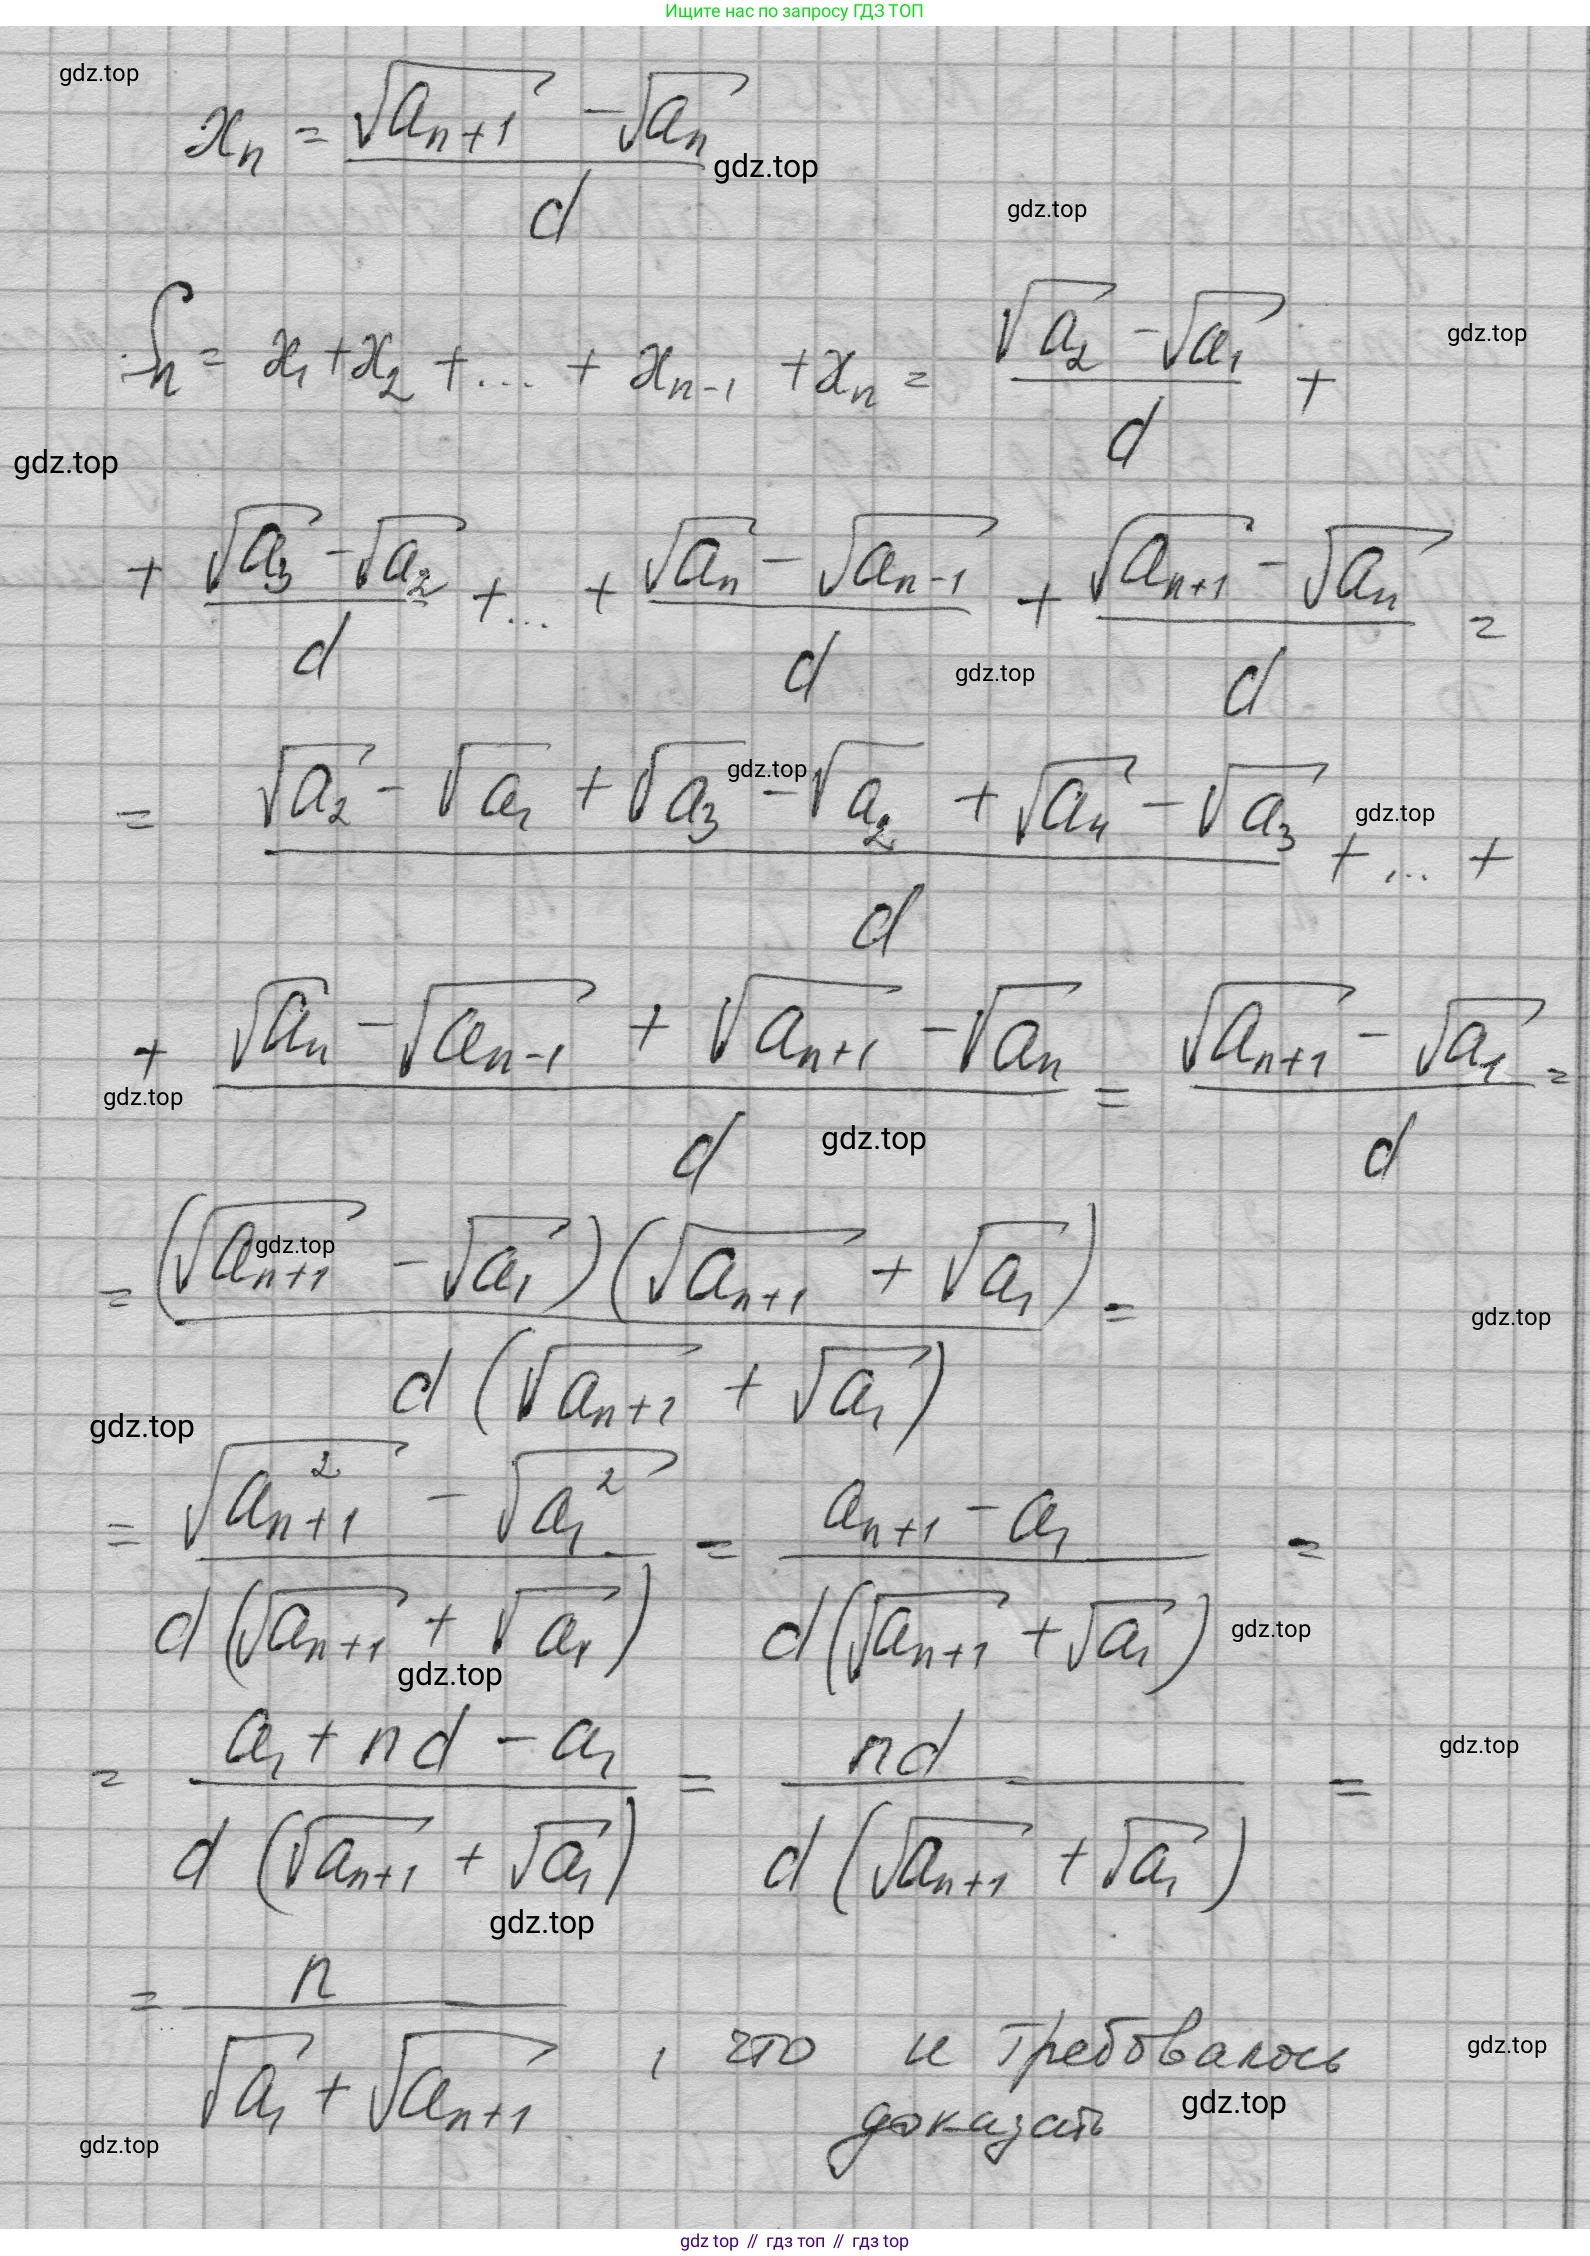 Ищите нас по запросу ГДЗ ТОП
gdz.top
xₙ = (√aₙ₊₁ - √aₙ) / d
gdz.top
gdz.top
Sₙ = x₁ + x₂ + ... + xₙ₋₁ + xₙ = (√a₂ - √a₁) / d +
gdz.top
gdz.top
+ (√a₃ - √a₂) / d + ... + (√aₙ - √aₙ₋₁) / d + (√aₙ₊₁ - √aₙ) / d =
gdz.top
= (√a₂ - √a₁ + √a₃ - √a₂ + √a₄ - √a₃) / d + ... +
gdz.top
gdz.top
+ (√aₙ - √aₙ₋₁ + √aₙ₊₁ - √aₙ) / d = (√aₙ₊₁ - √a₁) / d =
gdz.top
gdz.top
= (√aₙ₊₁ - √a₁)(√aₙ₊₁ + √a₁) / d(√aₙ₊₁ + √a₁) =
gdz.top
gdz.top
gdz.top
= (√aₙ₊₁² - √a₁²) / d(√aₙ₊₁ + √a₁) = (aₙ₊₁ - a₁) / d(√aₙ₊₁ + √a₁) =
gdz.top
gdz.top
= (a₁ + nd - a₁) / d(√aₙ₊₁ + √a₁) = nd / d(√aₙ₊₁ + √a₁) =
gdz.top
gdz.top
= n / (√a₁ + √aₙ₊₁) , что и требовалось
gdz.top
доказать
gdz.top
gdz.top
gdz top // гдз топ // гдз top